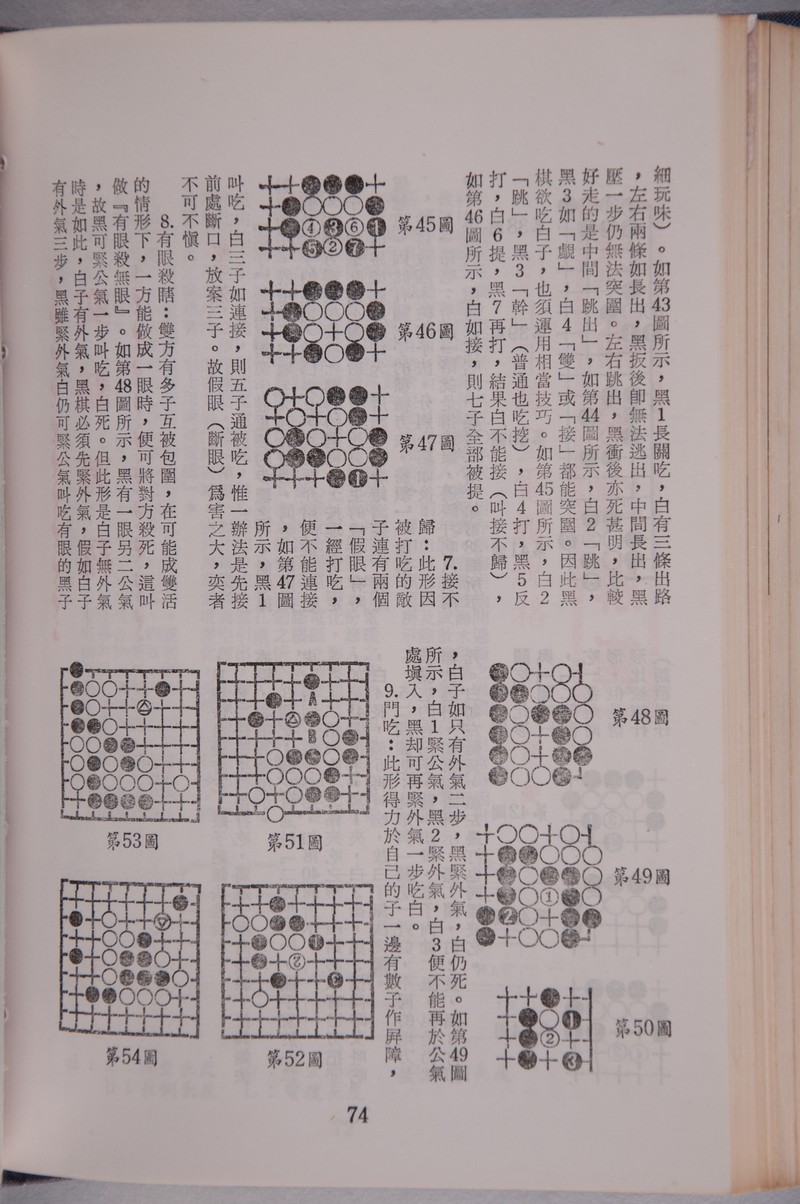 細玩味）。如第43圖所示，黑1長關吃，白有三條出路
，左右兩條如長出，黑扳後即無法逃出，中間長出，黑
壓一步仍無法突圍。左右跳出，黑衝後亦死甚明，比較
好走的是中間「跳出」，如第44圖所示，白2「跳」，
黑3如「覷」，白4「雙」或「接」都能突圍。因此黑
棋欲吃白子，也須運用相當技巧。如第45圖所示，白2
「跳」，黑3「幹」（普通也吃挖），白4打，黑5反
打，白6提，黑7再打，結果白不能接（叫接不歸），
如第46圖所示，白如接，則七子全部被提。
第45圖
第46圖
第47圖
7.接不
歸：此形因
被打吃的敵
子連有兩個
「假眼」，
一經打吃，
便不能連接
，如第47圖
所示，黑1
叫吃，白三子如連接，則五子通被吃，惟一辦法是先接
前處斷口，放案三子。故假眼（斷眼）爲害之大，奕者
不可不愼。
8.有眼殺瞎：雙方有多子互被包圍，在可能成雙活
的情形下，一方能做成一眼時，便可將對方殺死，這叫
做『有眼殺無眼』。如第48圖所示，黑有一眼另二公氣
，故黑可緊公氣一步叫吃，白死。但此形是白子無外氣
時是如此，白子有外氣，黑棋必須先緊外氣，假如白子
有外氣三步，黑雖緊外氣白仍可緊公氣叫吃有眼的黑子
第48圖
第49圖
第50圖
，白子如只有外氣二步，黑緊外氣，白仍死。如第49圖
所示，白1緊公氣，黑2緊外氣，白3便不能再於公氣
處塡入，黑却可再緊外氣一步吃白。
9.門吃：此形得力於自己的子一邊有數子作屛障，
A
B
第51圖
第52圖
第53圖
第54圖
74